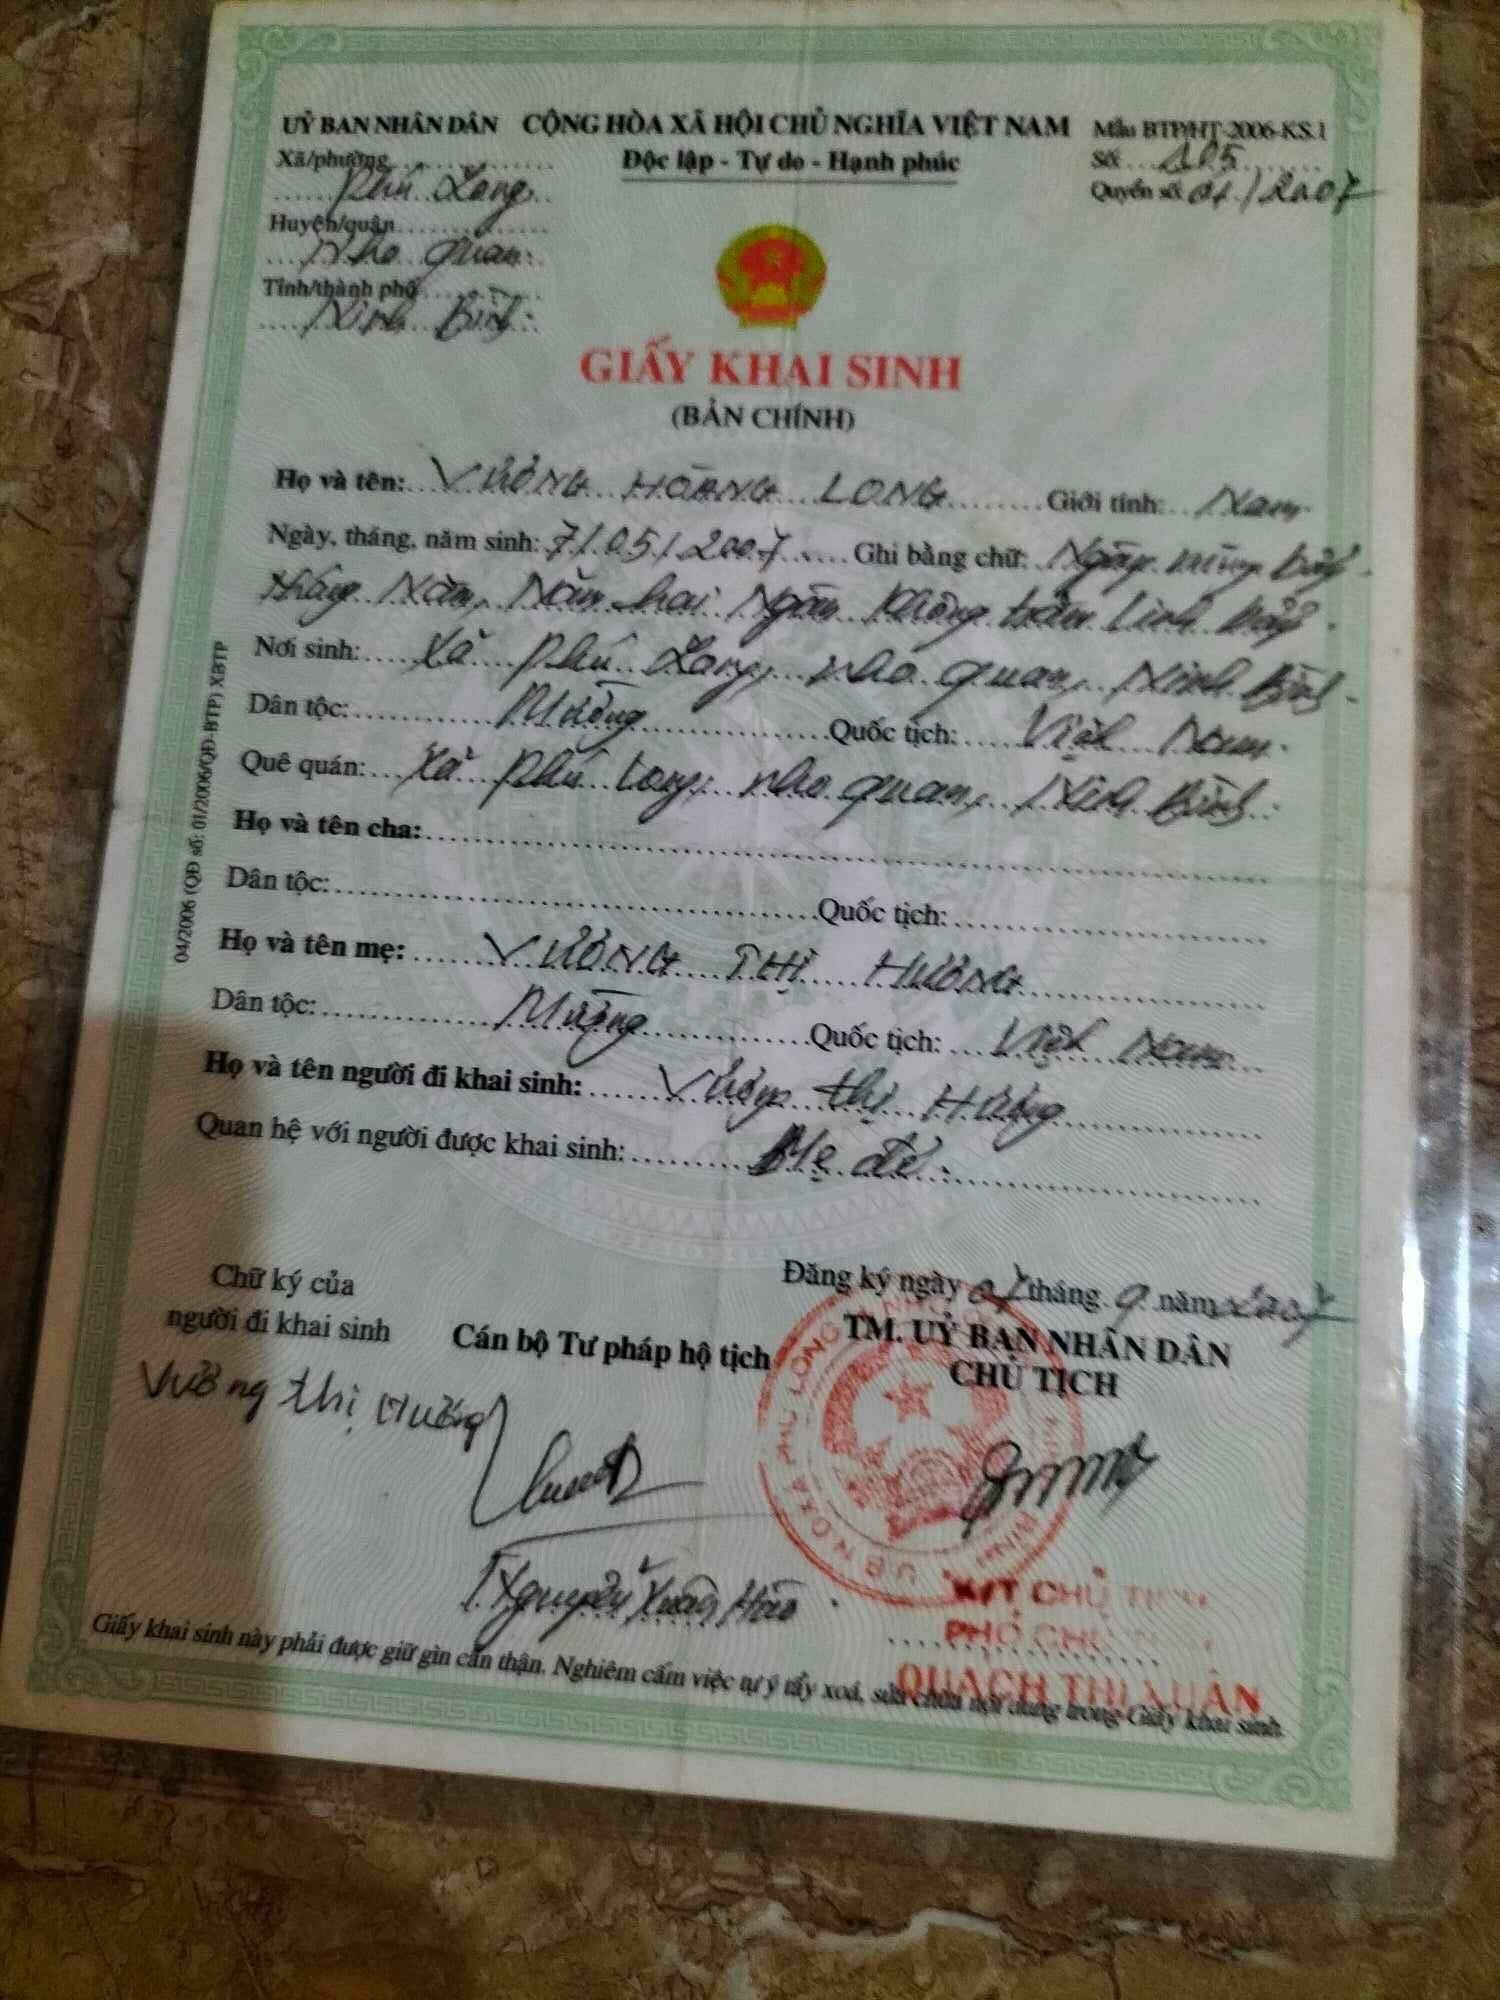 UỶ BAN NHÂN DÂN
Xã/phường
Phú Long
Huyện/quận
Nho quan
Tỉnh/thành phố
Ninh Bình
CỘNG HÒA XÃ HỘI CHỦ NGHĨA VIỆT NAM
Độc lập - Tự do - Hạnh phúc
Mẫu BTP/HT-2006-KS.1
Số: 105
Quyển số: 01/2007
GIẤY KHAI SINH
(BẢN CHÍNH)
Họ và tên: VƯƠNG HOÀNG LONG Giới tính: Nam
Ngày, tháng, năm sinh: 7/05/2007 Ghi bằng chữ: Ngày mùng bảy
tháng Năm, Năm hai Ngàn không trăm linh bảy
Nơi sinh: Xã Phú Long, nho quan, Ninh Bình
Dân tộc: Mường Quốc tịch: Việt Nam
Quê quán: Xã Phú Long, nho quan, Ninh Bình
Họ và tên cha:
Dân tộc: Quốc tịch:
Họ và tên mẹ: VƯƠNG THỊ HƯƠNG
Dân tộc: Mường Quốc tịch: Việt Nam
Họ và tên người đi khai sinh: Vương thị Hương
Quan hệ với người được khai sinh: Mẹ đẻ
04/2006 (QĐ số: 01/2006/QĐ-BTP) XBTP
Đăng ký ngày 07 tháng 9 năm 2007
Chữ ký của
người đi khai sinh
Cán bộ Tư pháp hộ tịch
TM. UỶ BAN NHÂN DÂN
CHỦ TỊCH
Vương thị Hương
Nguyễn Xuân Hảo
U.B.N.D XÃ PHÚ LONG
K/T CHỦ TỊCH
PHÓ CHỦ TỊCH
QUÁCH THỊ XUÂN
Giấy khai sinh này phải được giữ gìn cẩn thận. Nghiêm cấm việc tự ý tẩy xoá, sửa chữa nội dung trong Giấy khai sinh.